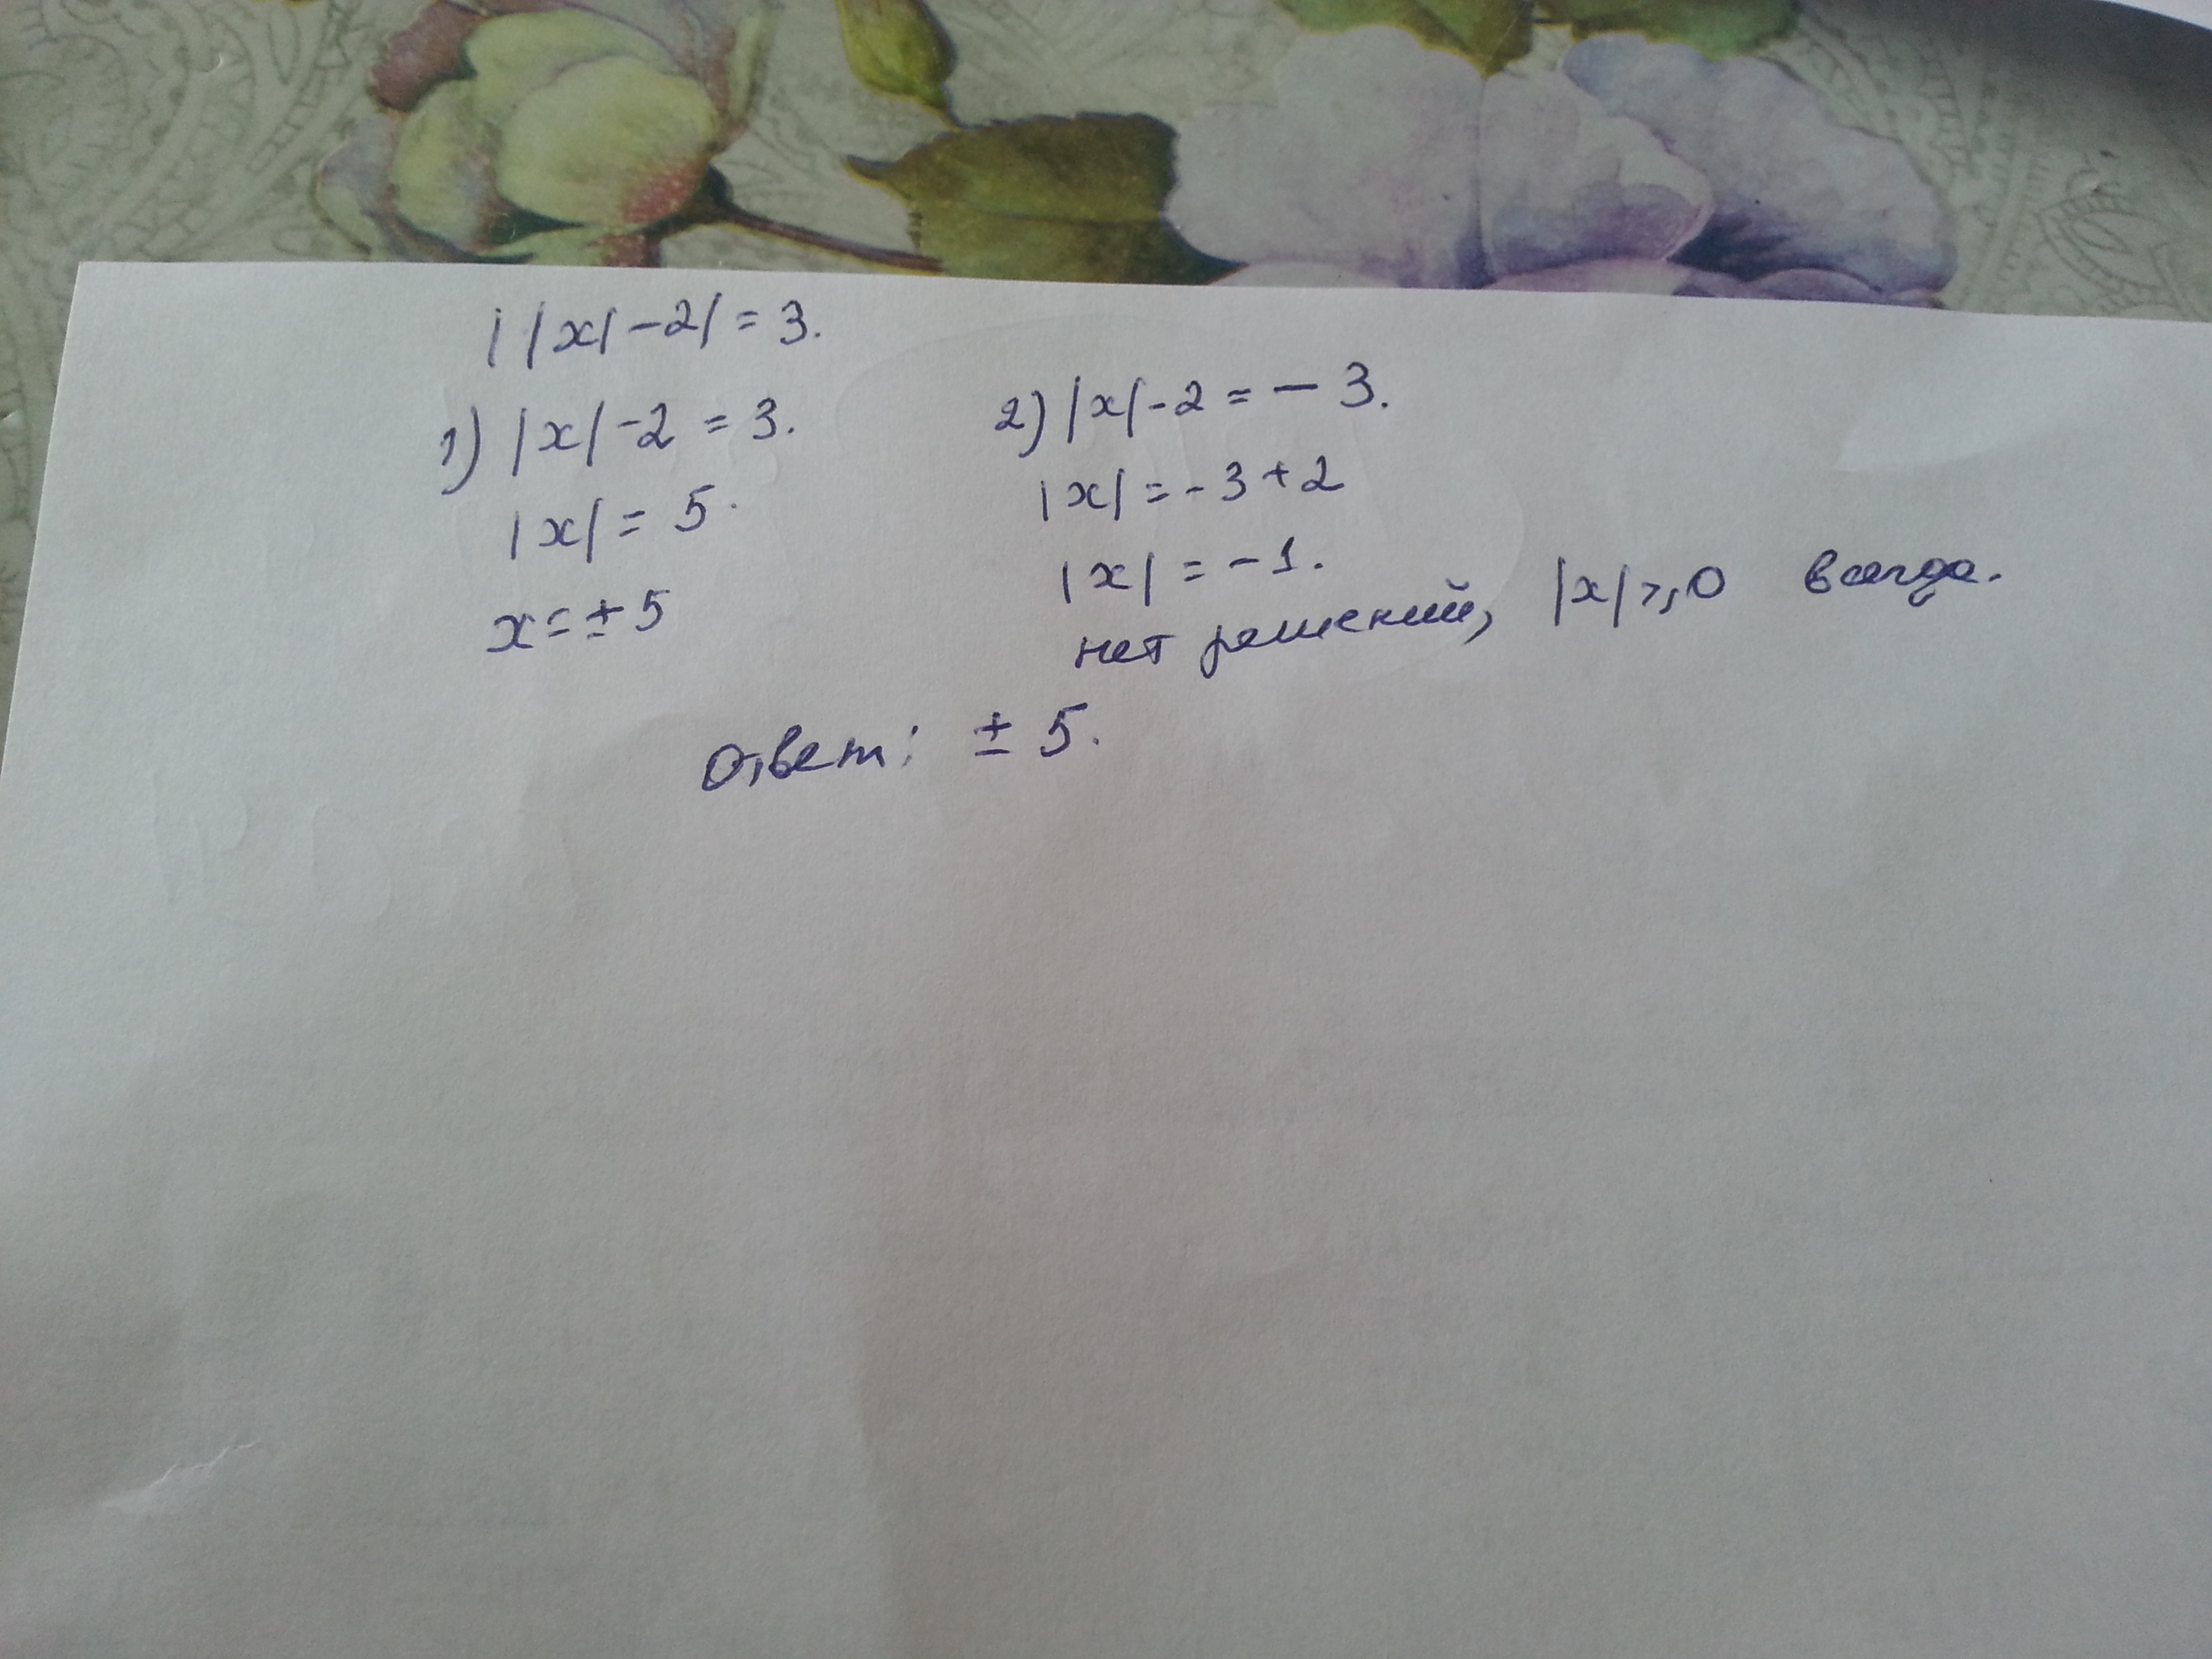 ||x|-2|=3.
1) |x|-2=3.
|x|=5.
x=±5
2) |x|-2=-3.
|x|=-3+2
|x|=-1.
нет решений, |x|≥0 всегда.
Ответ: ±5.